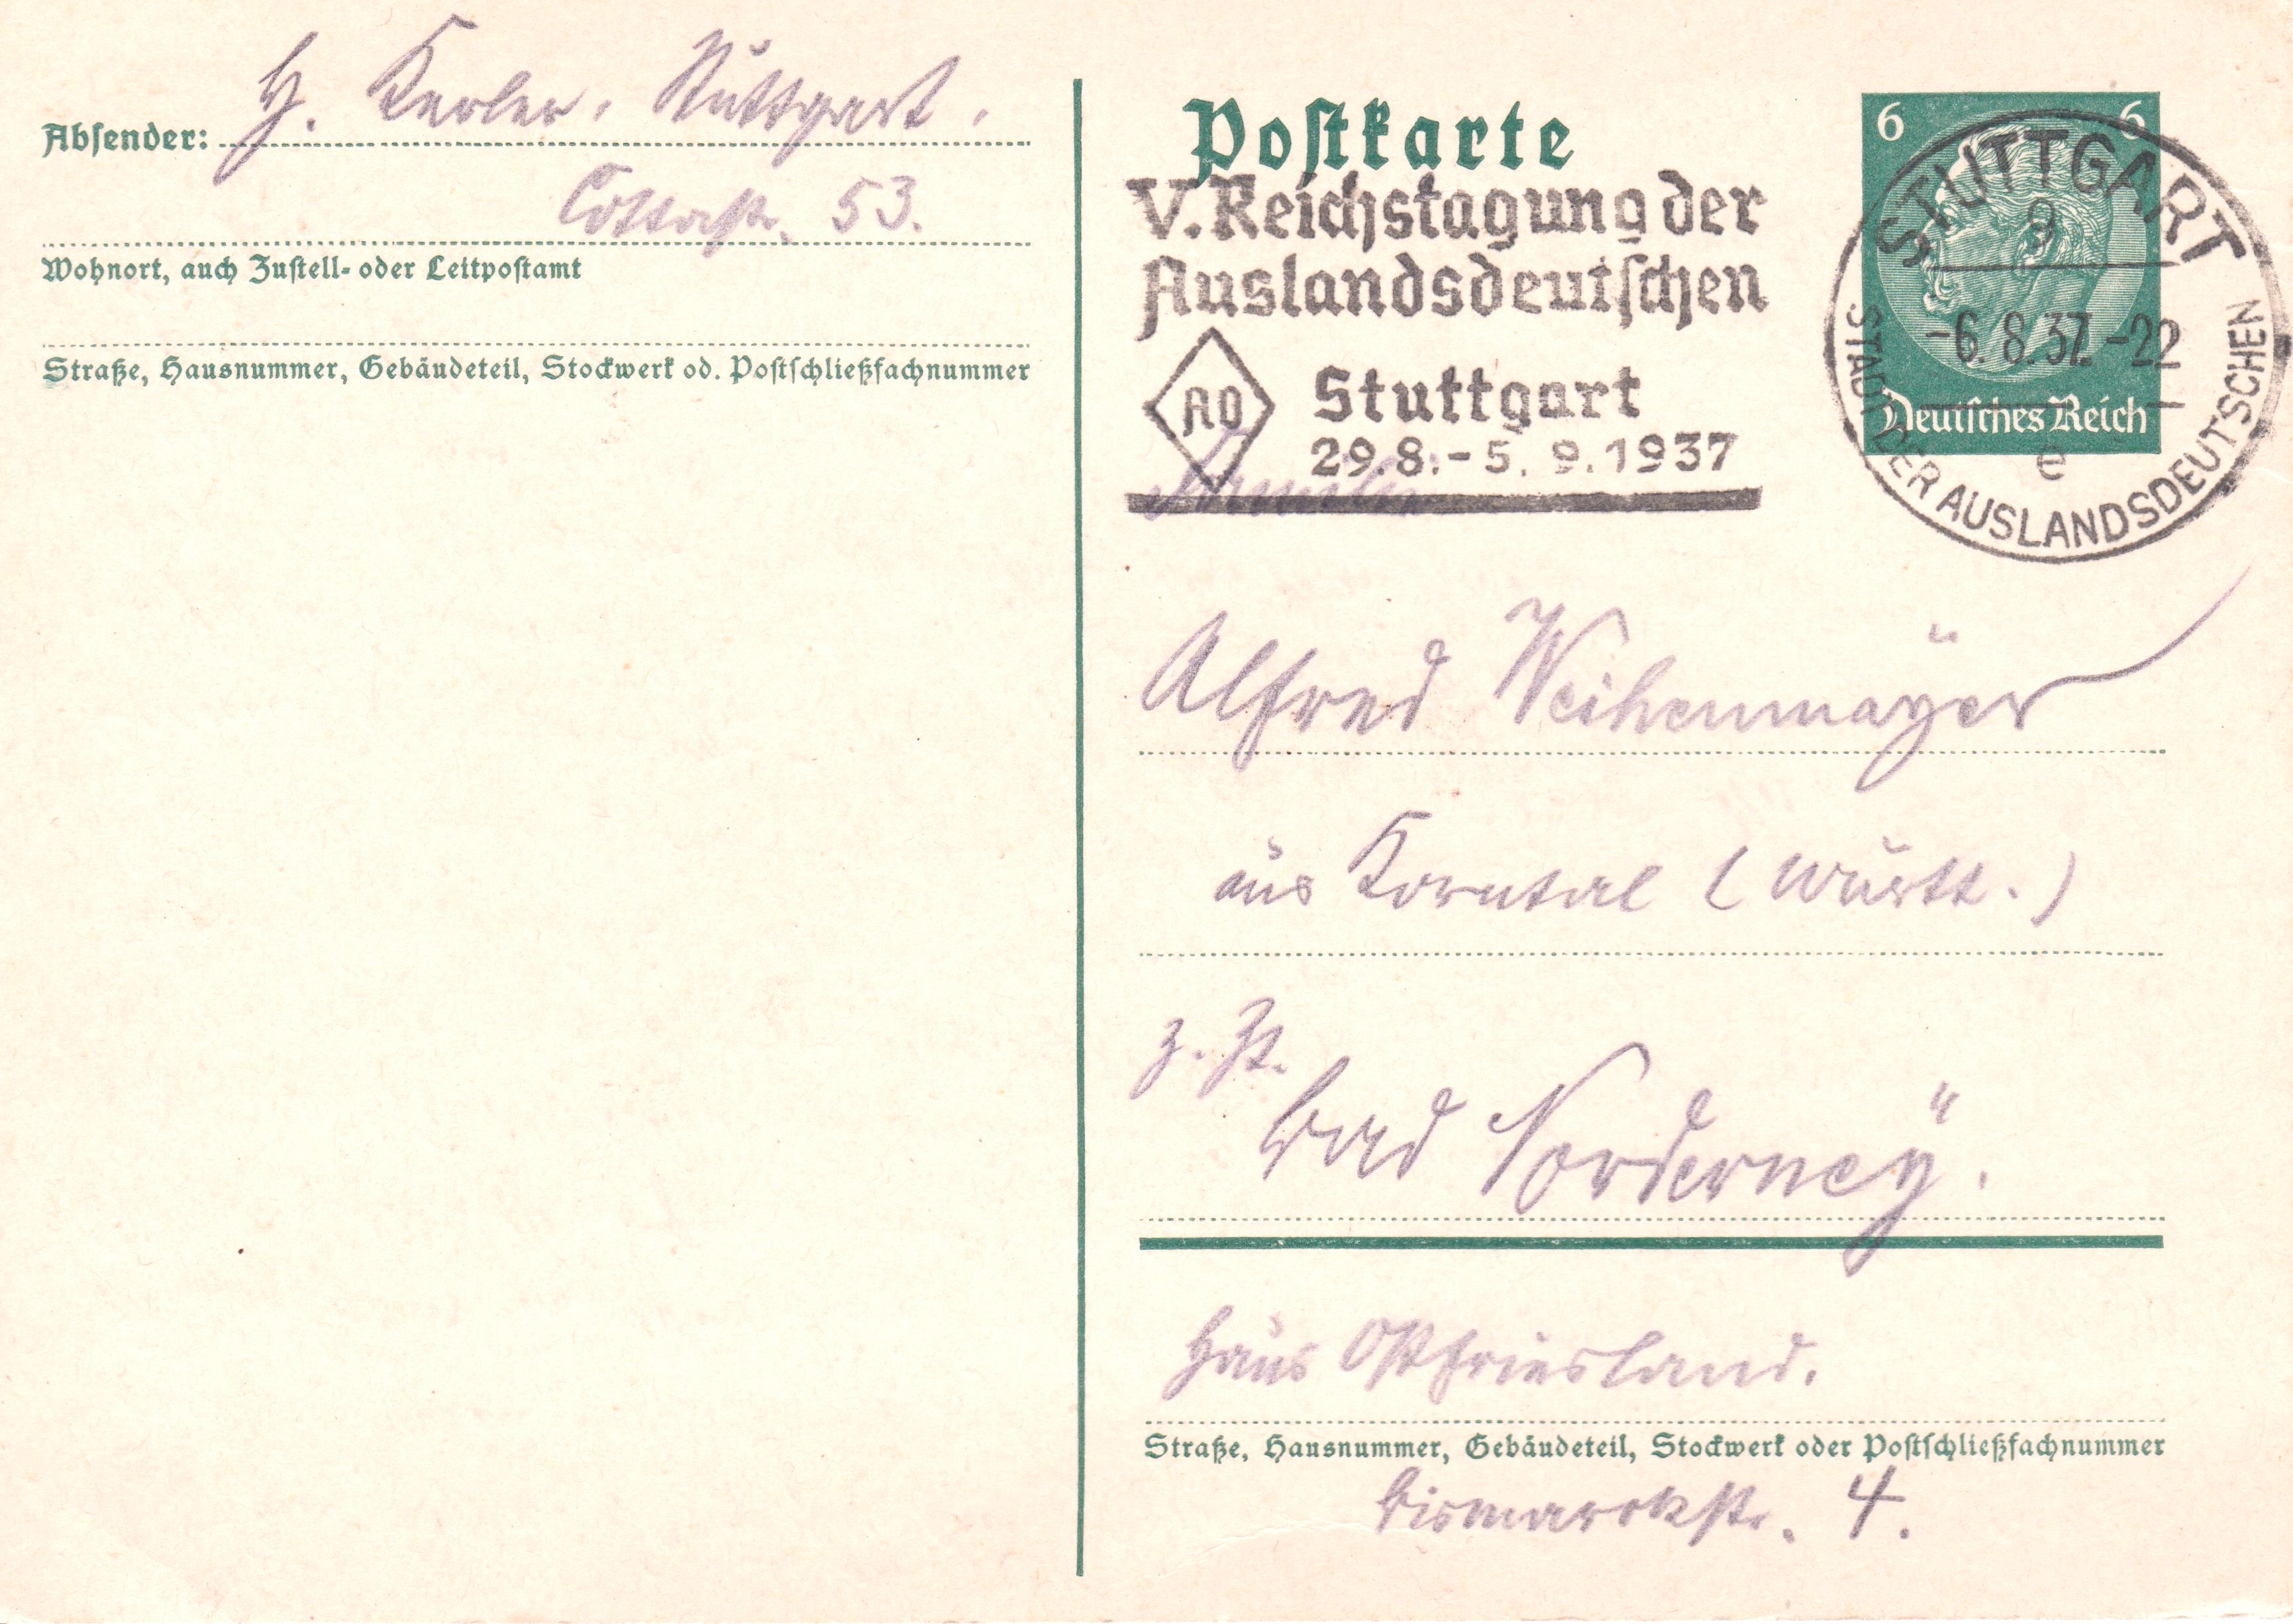 Absender: H. Kerler, Stuttgart,
Cottastr. 53.
Wohnort, auch Zustell- oder Leitpostamt
Straße, Hausnummer, Gebäudeteil, Stockwerk od. Postschließfachnummer
Postkarte
V. Reichstagung der
Auslandsdeutschen
AO
Stuttgart
29.8.-5.9.1937
6 6
Deutsches Reich
STUTTGART
9
-6.8.37.-22
e
STADT DER AUSLANDSDEUTSCHEN
Familie
Alfred Weihenmayer
aus Korntal (Württ.)
z. Zt.
Bad Norderney.
Haus Ostfriesland.
Straße, Hausnummer, Gebäudeteil, Stockwerk oder Postschließfachnummer
Bismarckstr. 4.